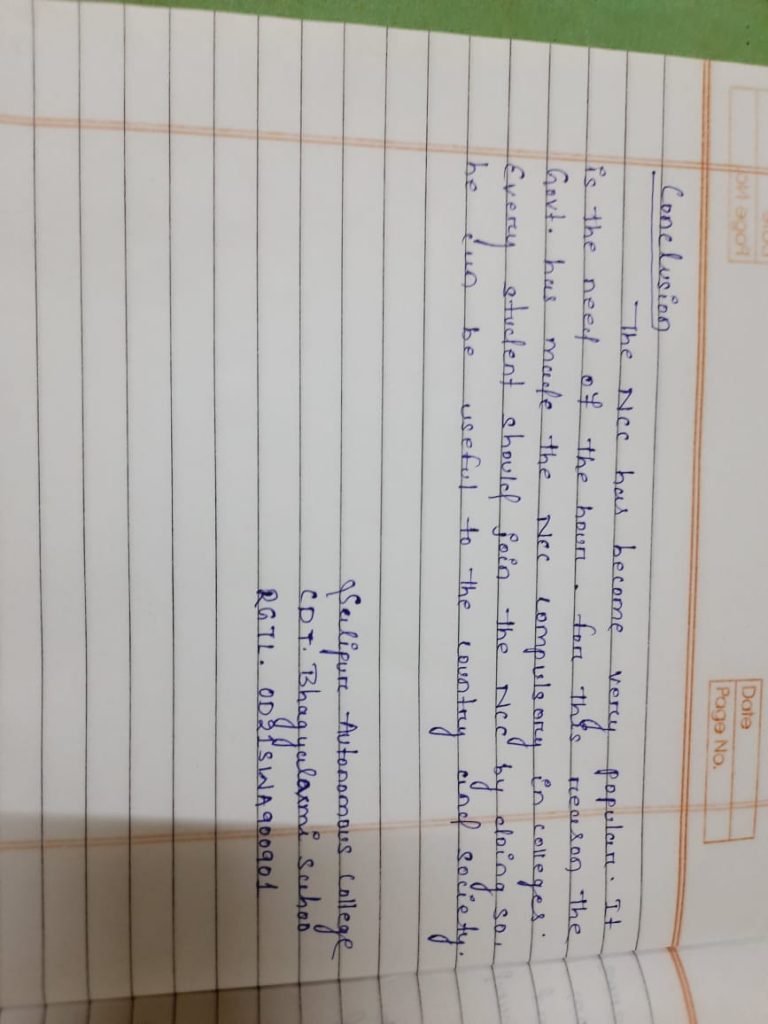 Date
Page No.
Conclusion
The Ncc has become very popular. It
is the need of the hour. for this reason the
Govt. has made the Ncc compulsory in colleges.
Every student should join the Ncc by doing so,
he can be useful to the country and society.
Salipur Autonomous College
CDT. Bhagyalaxmi Sahoo
RGTL. OD21SWA900901